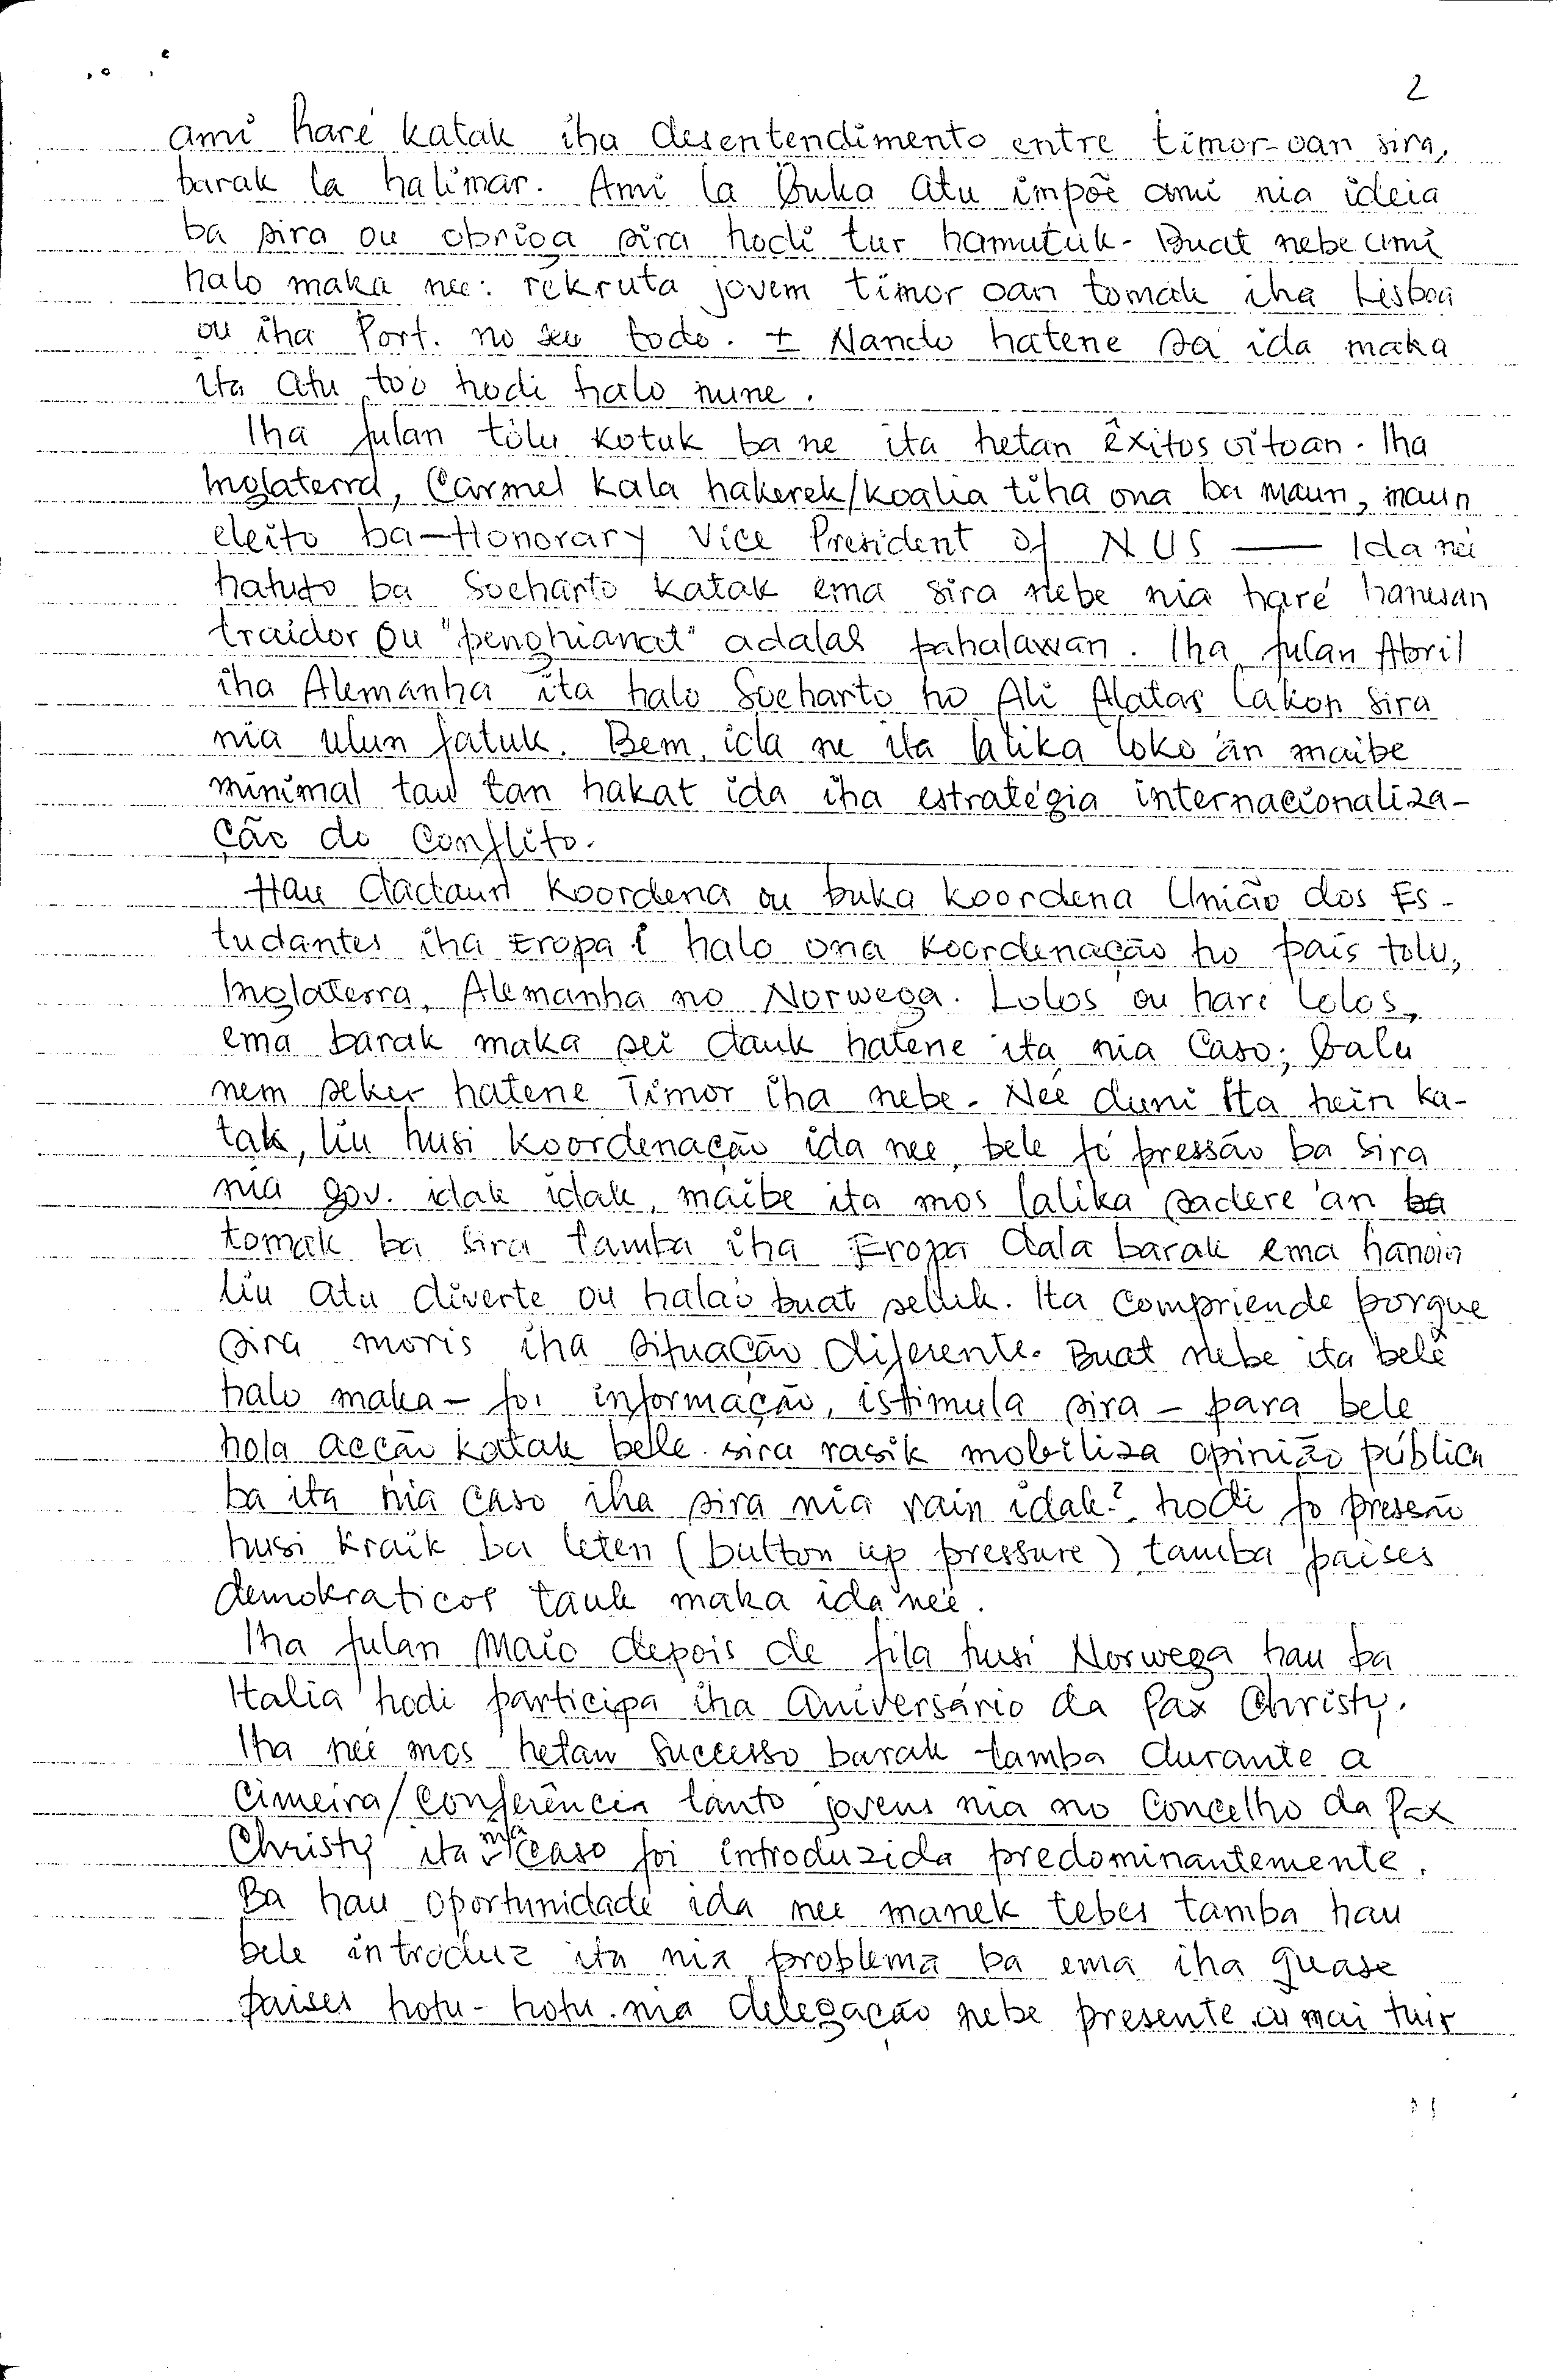 2
ami haré katak iha desentendimento entre timor-oan sira,
barak la halimar. Ami la buka atu impõe ami nia ideia
ba sira ou obriga sira hodi tur hamutuk. Buat nebe ami
halo maka nee: rekruta jovem timor oan tomak iha Lisboa
ou iha Port. no seu todo. ± Nando hatene sa ida maka
ita atu too hodi halo nune.
Iha fulan tolu kotuk ba ne ita hetan êxitos oitoan. Iha
Inglaterra, Carmel kala hakerek/koalia tiha ona ba maun, maun
eleito ba - Honorary Vice President of NUS — Ida neé
hatudo ba Soeharto katak ema sira nebe nia haré hanesan
traidor ou "penghianat" adalah pahalawan. Iha fulan Abril
iha Alemanha ita halo Soeharto ho Ali Alatas lakon sira
nia ulun fatuk. Bem, ida ne ita lalika loko an maibe
minimal tau tan hakat ida iha estratégia internacionaliza-
ção do Conflito.
Hau dadaun koordena ou buka koordena União dos Es-
tudantes iha Eropa i halo ona koordenação ho pais tolu,
Inglaterra, Alemanha no Norwega. Lolos ou haré lolos,
ema barak maka sei dauk hatene ita nia Caso; balu
nem seker hatene Timor iha nebe. Neé duni ita hein ka-
tak, liu husi koordenação ida nee, bele fó pressão ba sira
nia gov. idak idak, maibe ita mos lalika sadere an ba
tomak ba sira tamba iha Eropa dala barak ema hanoin
liu atu diverte ou halao buat seluk. Ita compriende porque
sira moris iha situação diferente. Buat nebe ita bele
halo maka - foi informação, istimula sira - para bele
hola acção katak bele sira rasik mobiliza opinião pública
ba ita nia caso iha sira nia rain idak² hodi fo presão
husi kraik ba leten (button up pressure) tamba paises
demokraticos tauk maka ida neé.
Iha fulan Maio depois de fila husi Norwega hau ba
Italia hodi participa iha Aniversário da Pax Christy.
Iha neé mos hetan successo barak tamba durante a
Cimeira/Conferência tanto jovens nia no Concelho da Pax
Christy ita nia caso foi introduzida predominantemente.
Ba hau oportunidade ida nee manek tebes tamba hau
bele introduz ita nia problema ba ema iha quase
paises hotu-hotu nia delegação nebe presente ou mai tuir